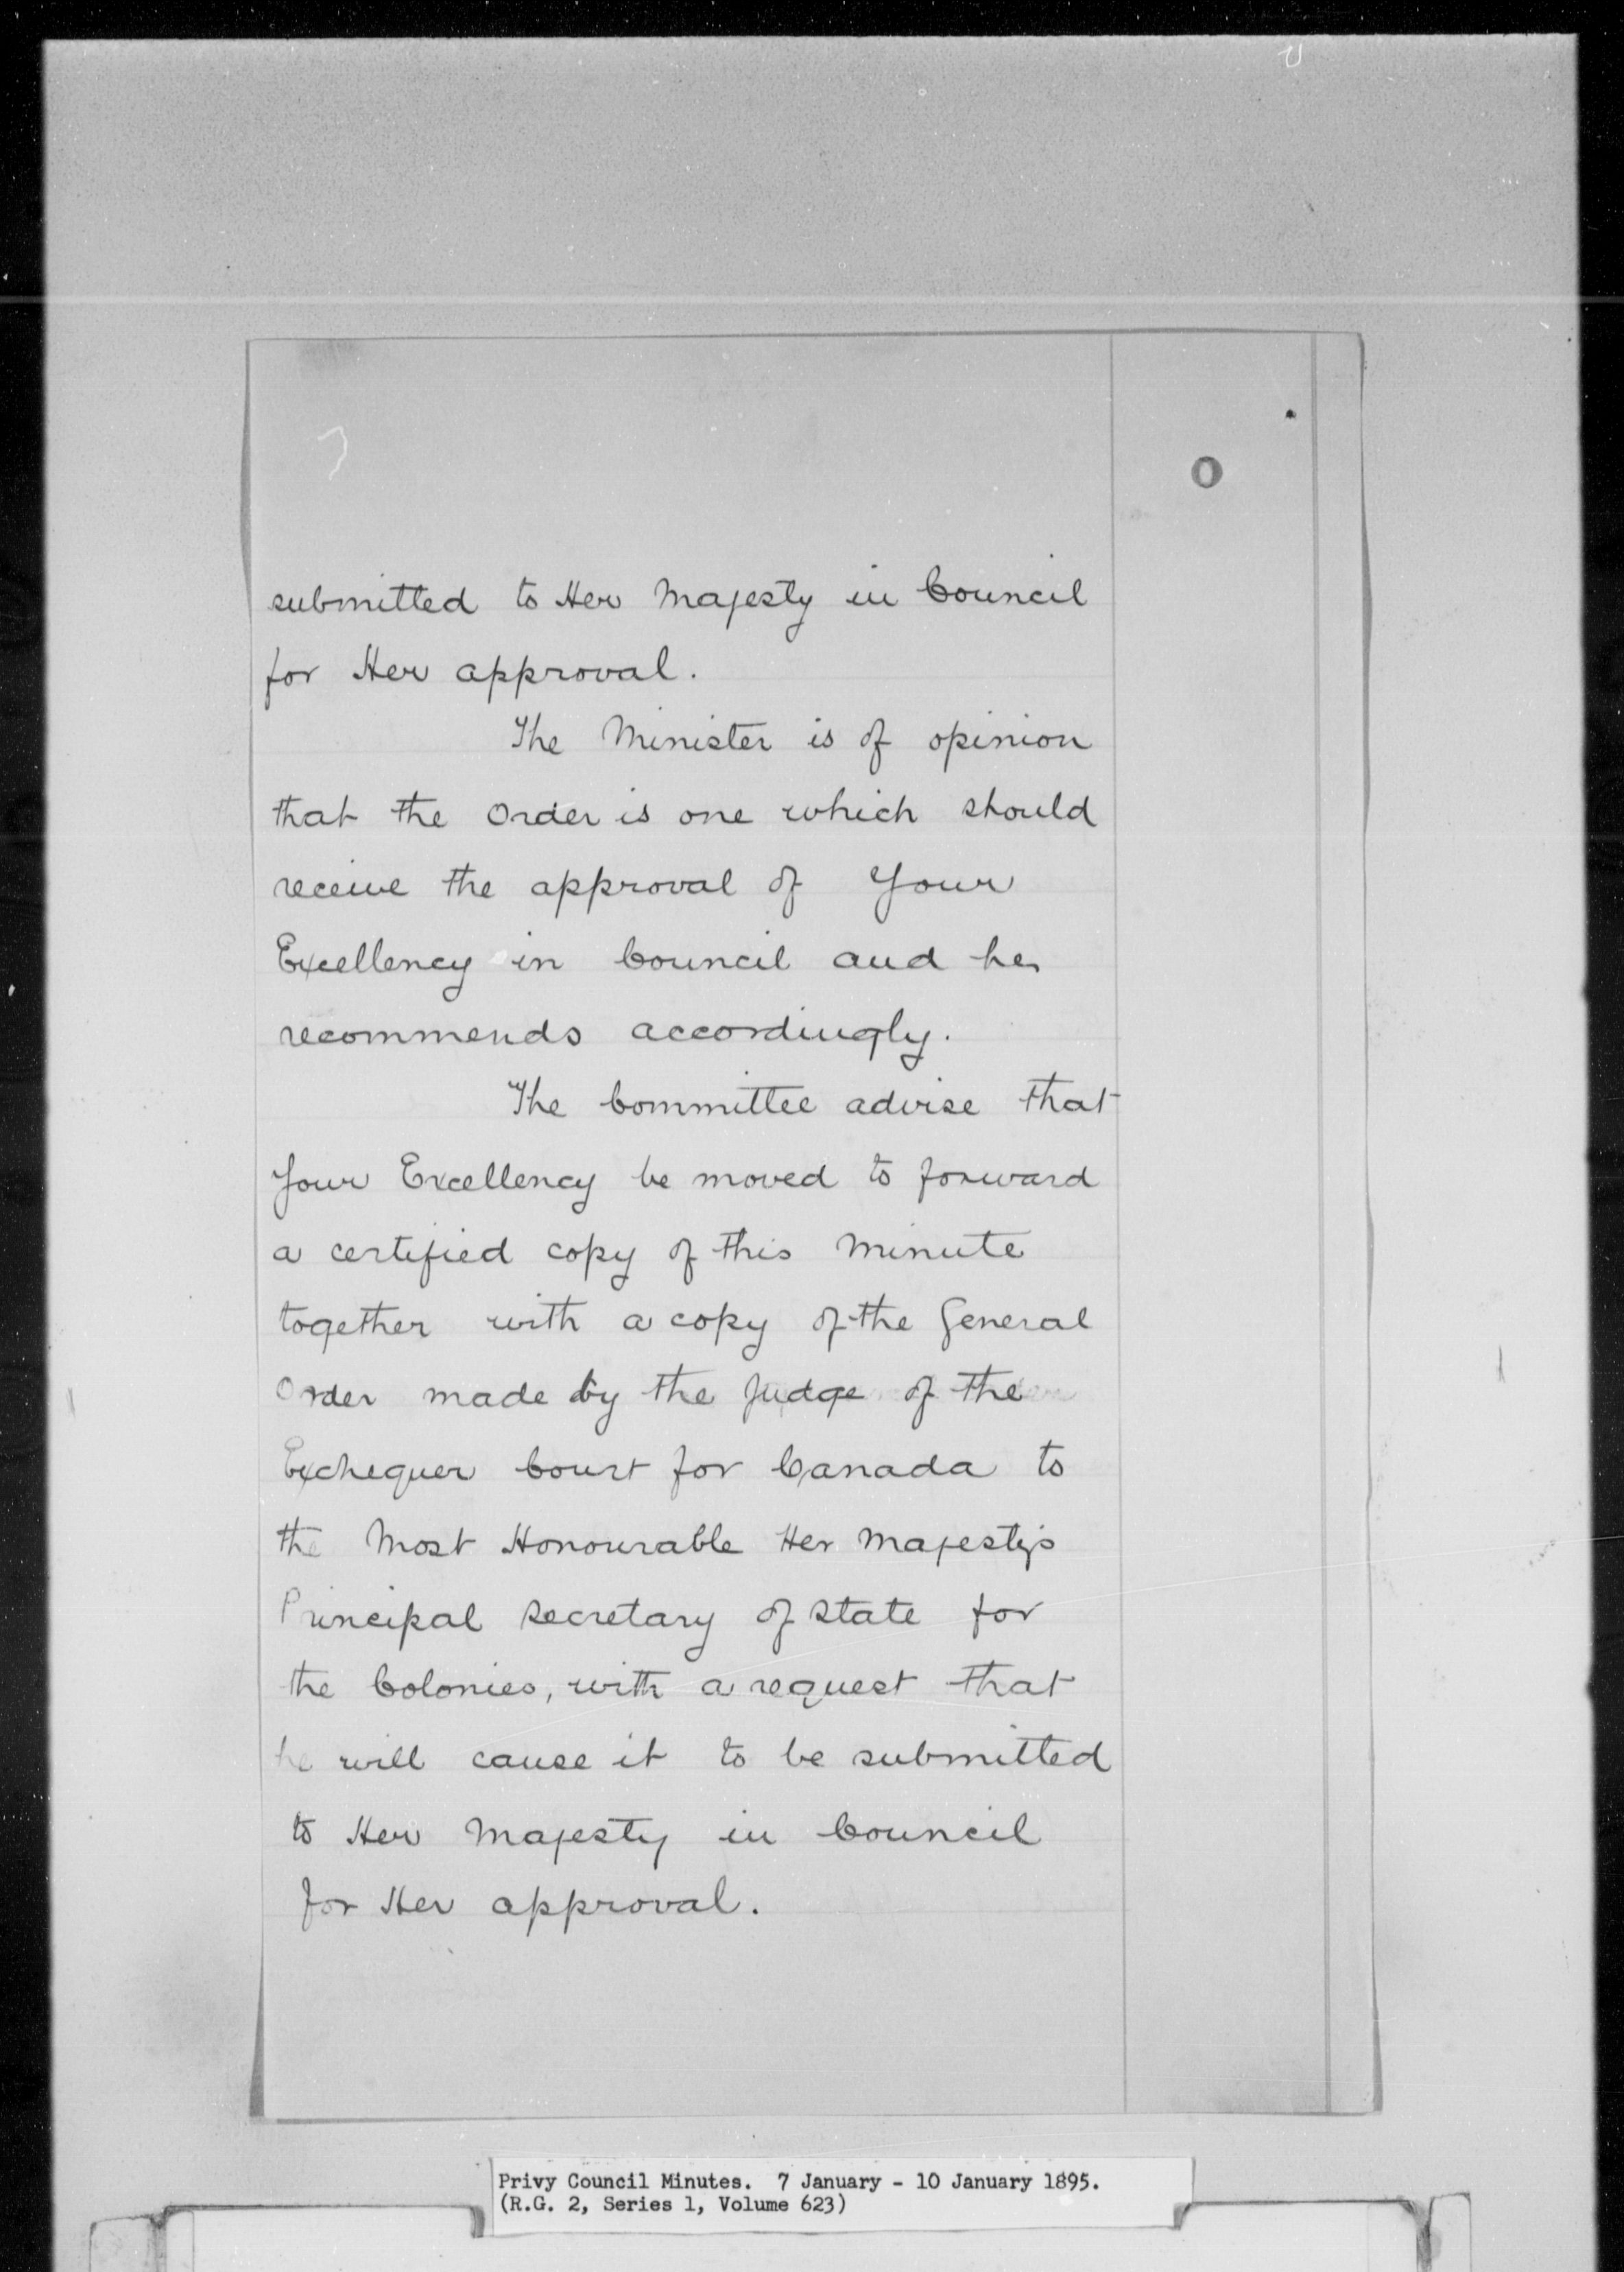 O
submitted to Her Majesty in Council
for Her approval.
The Minister is of opinion
that the Order is one which should
receive the approval of Your
Excellency in Council and he
recommends accordingly.
The Committee advise that
Your Excellency be moved to forward
a certified copy of this Minute
together with a copy of the General
Order made by the Judge of the
Exchequer Court for Canada to
the Most Honourable Her Majesty's
Principal Secretary of State for
the Colonies, with a request that
he will cause it to be submitted
to Her Majesty in Council
for Her approval.
Privy Council Minutes. 7 January - 10 January 1895.
(R.G. 2, Series 1, Volume 623)